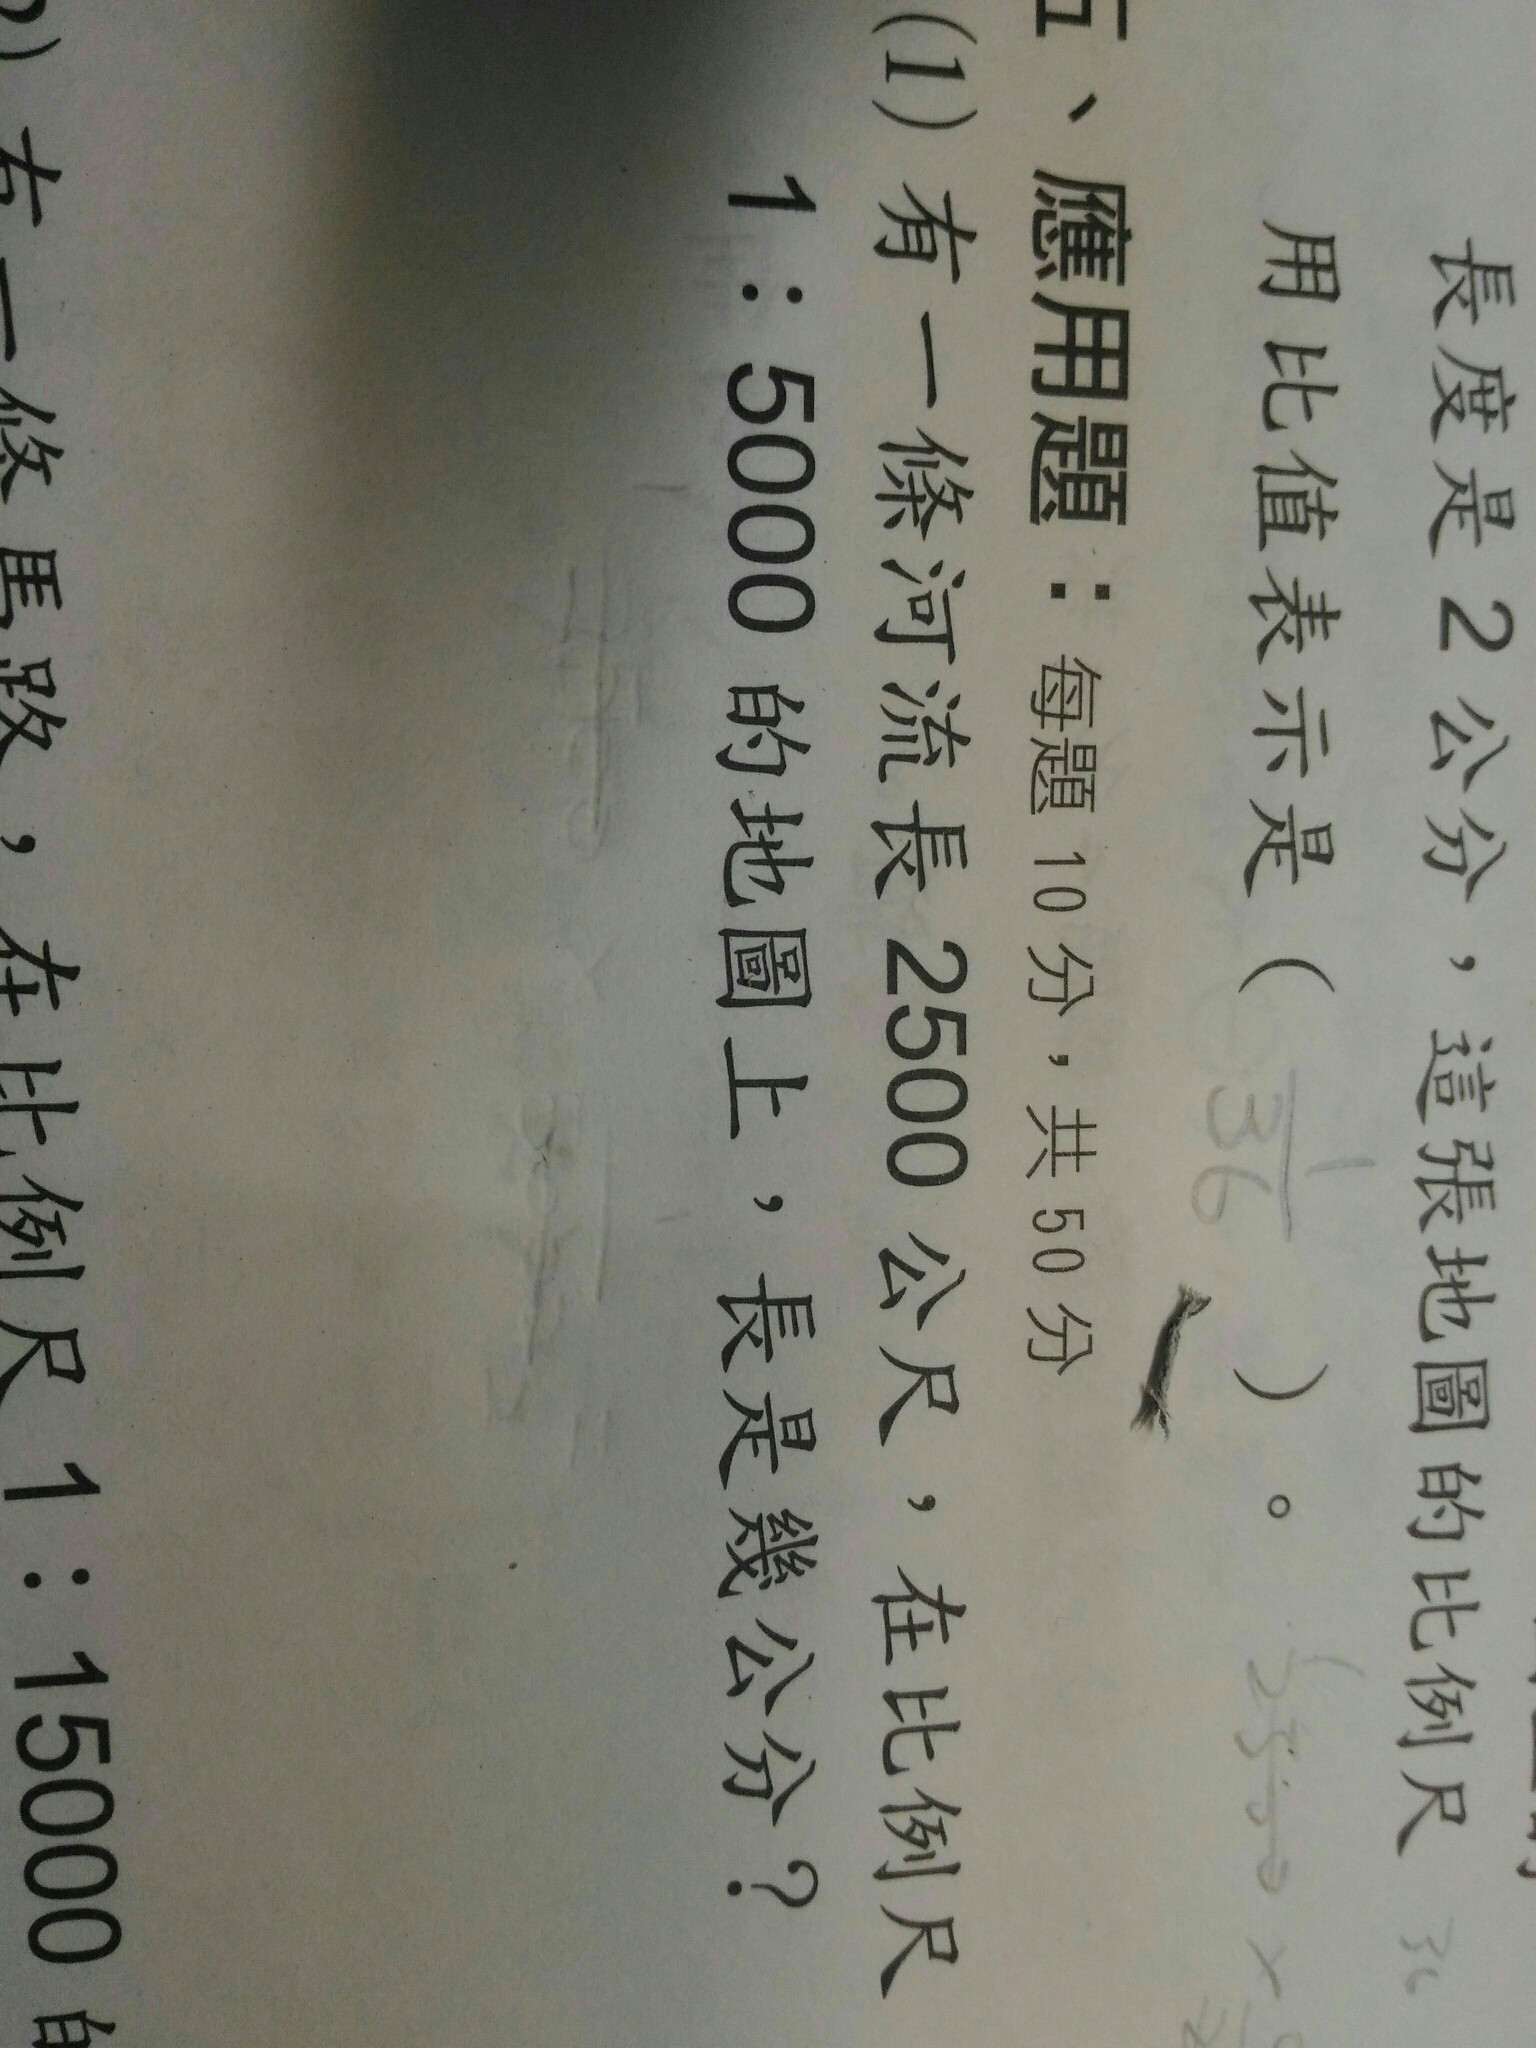 長度是 2 公分，這張地圖的比例尺
用比值表示是（ 1/36 ）。
五、應用題：每題 10 分，共 50 分
(1) 有一條河流長 2500 公尺，在比例尺
1：5000 的地圖上，長是幾公分？
有一條馬路，在比例尺 1：15000 的